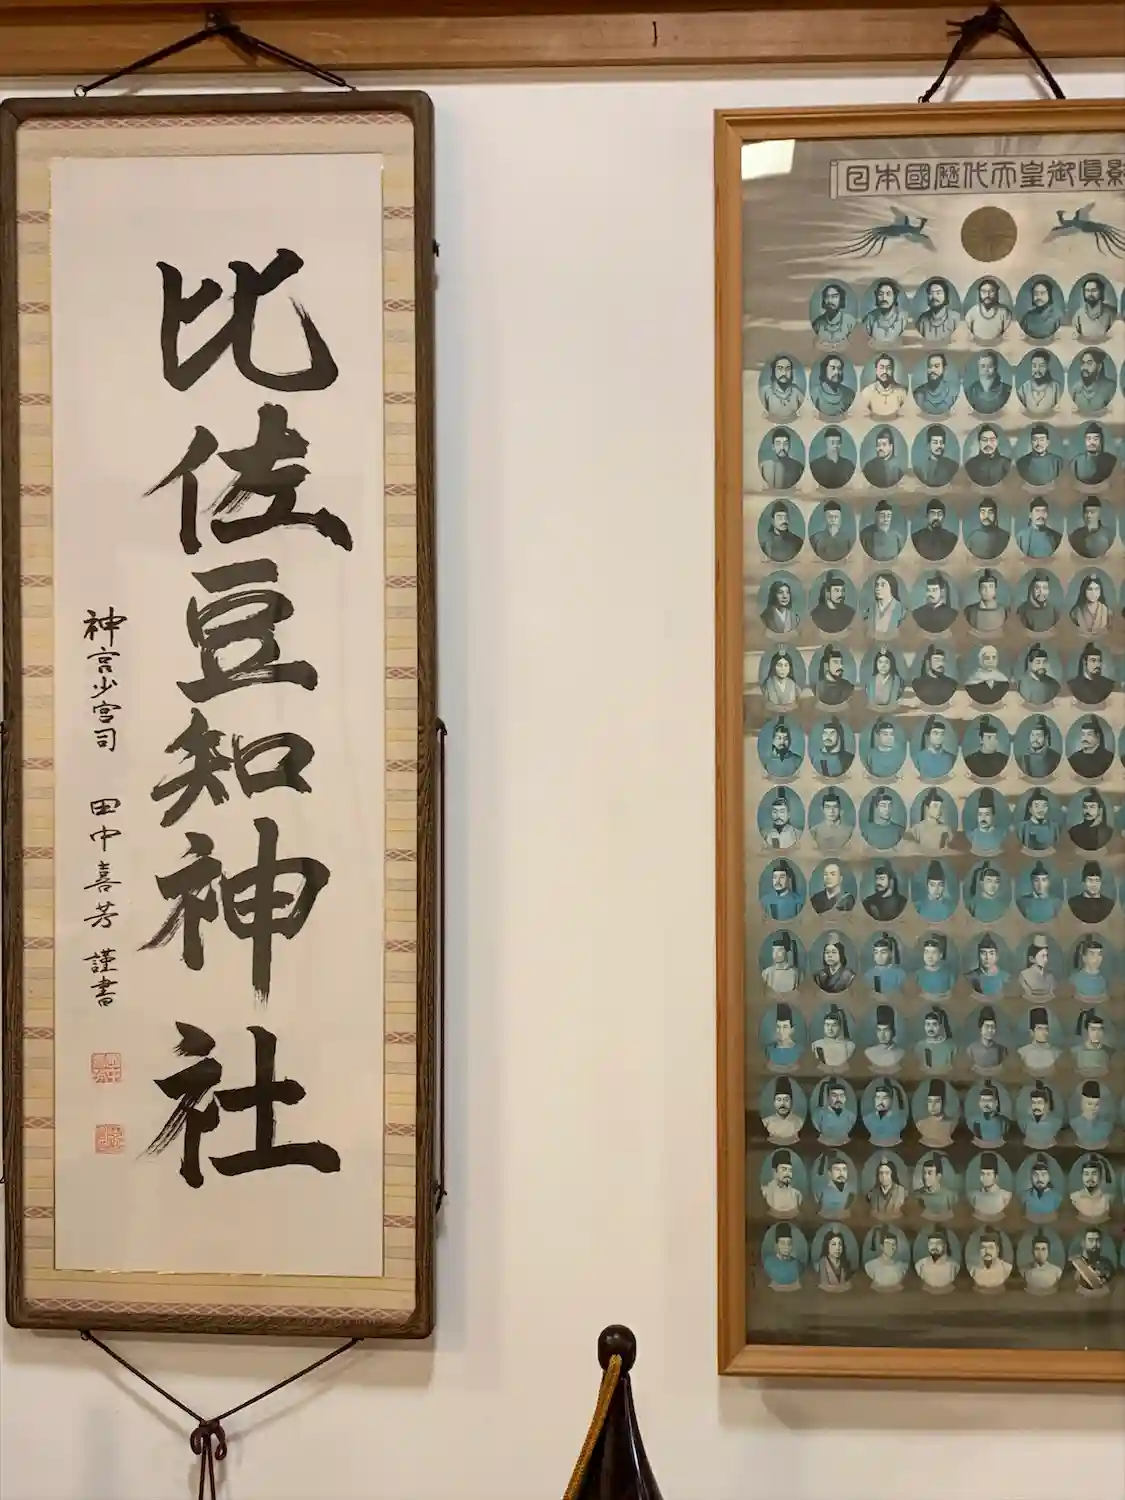 比佐豆知神社
神宮少宮司 田中喜芳 謹書
日本國歴代天皇御眞影